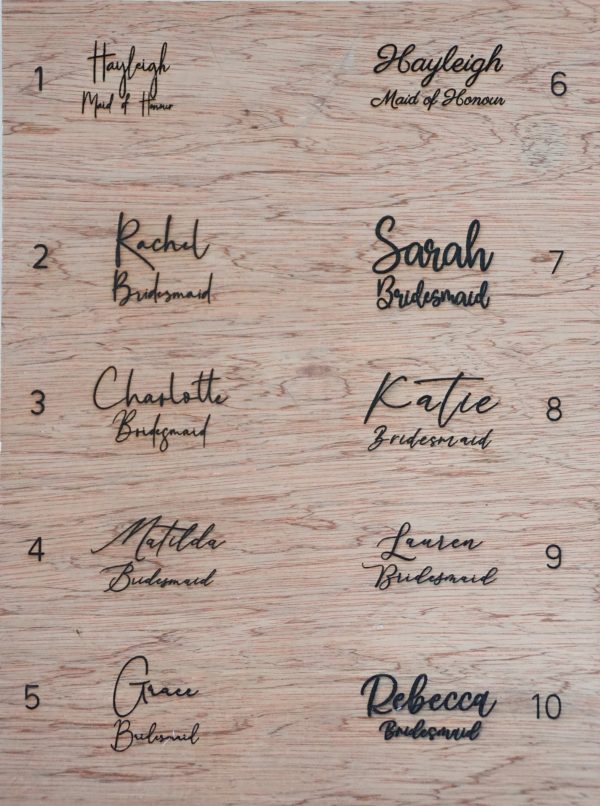 1
Hayleigh
Maid of Honour
2
Rachel
Bridesmaid
3
Charlotte
Bridesmaid
4
Matilda
Bridesmaid
5
Grace
Bridesmaid
Hayleigh
Maid of Honour
6
Sarah
Bridesmaid
7
Katie
Bridesmaid
8
Lauren
Bridesmaid
9
Rebecca
Bridesmaid
10